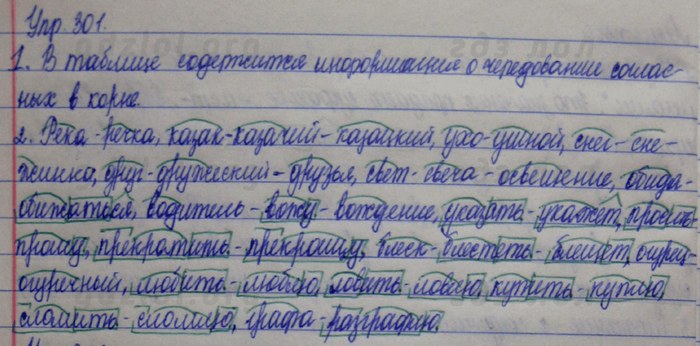 Упр. 301.
1. В таблице содержится информация о чередовании соглас-
ных в корне.
2. Река - речка, казак - казачий - казацкий, ухо - ушной, снег - сне-
жинка, друг - дружеский - друзья, свет - свеча - освещение, обида -
обижаться, водитель - вожу - вождение, указать - укажет, просить
прошу, прекратить - прекращу, блеск - блестеть - блещет, огурец -
огуречный, любить - люблю, ловить - ловлю, купить - куплю,
сломить - сломлю, графа - разграфлю.